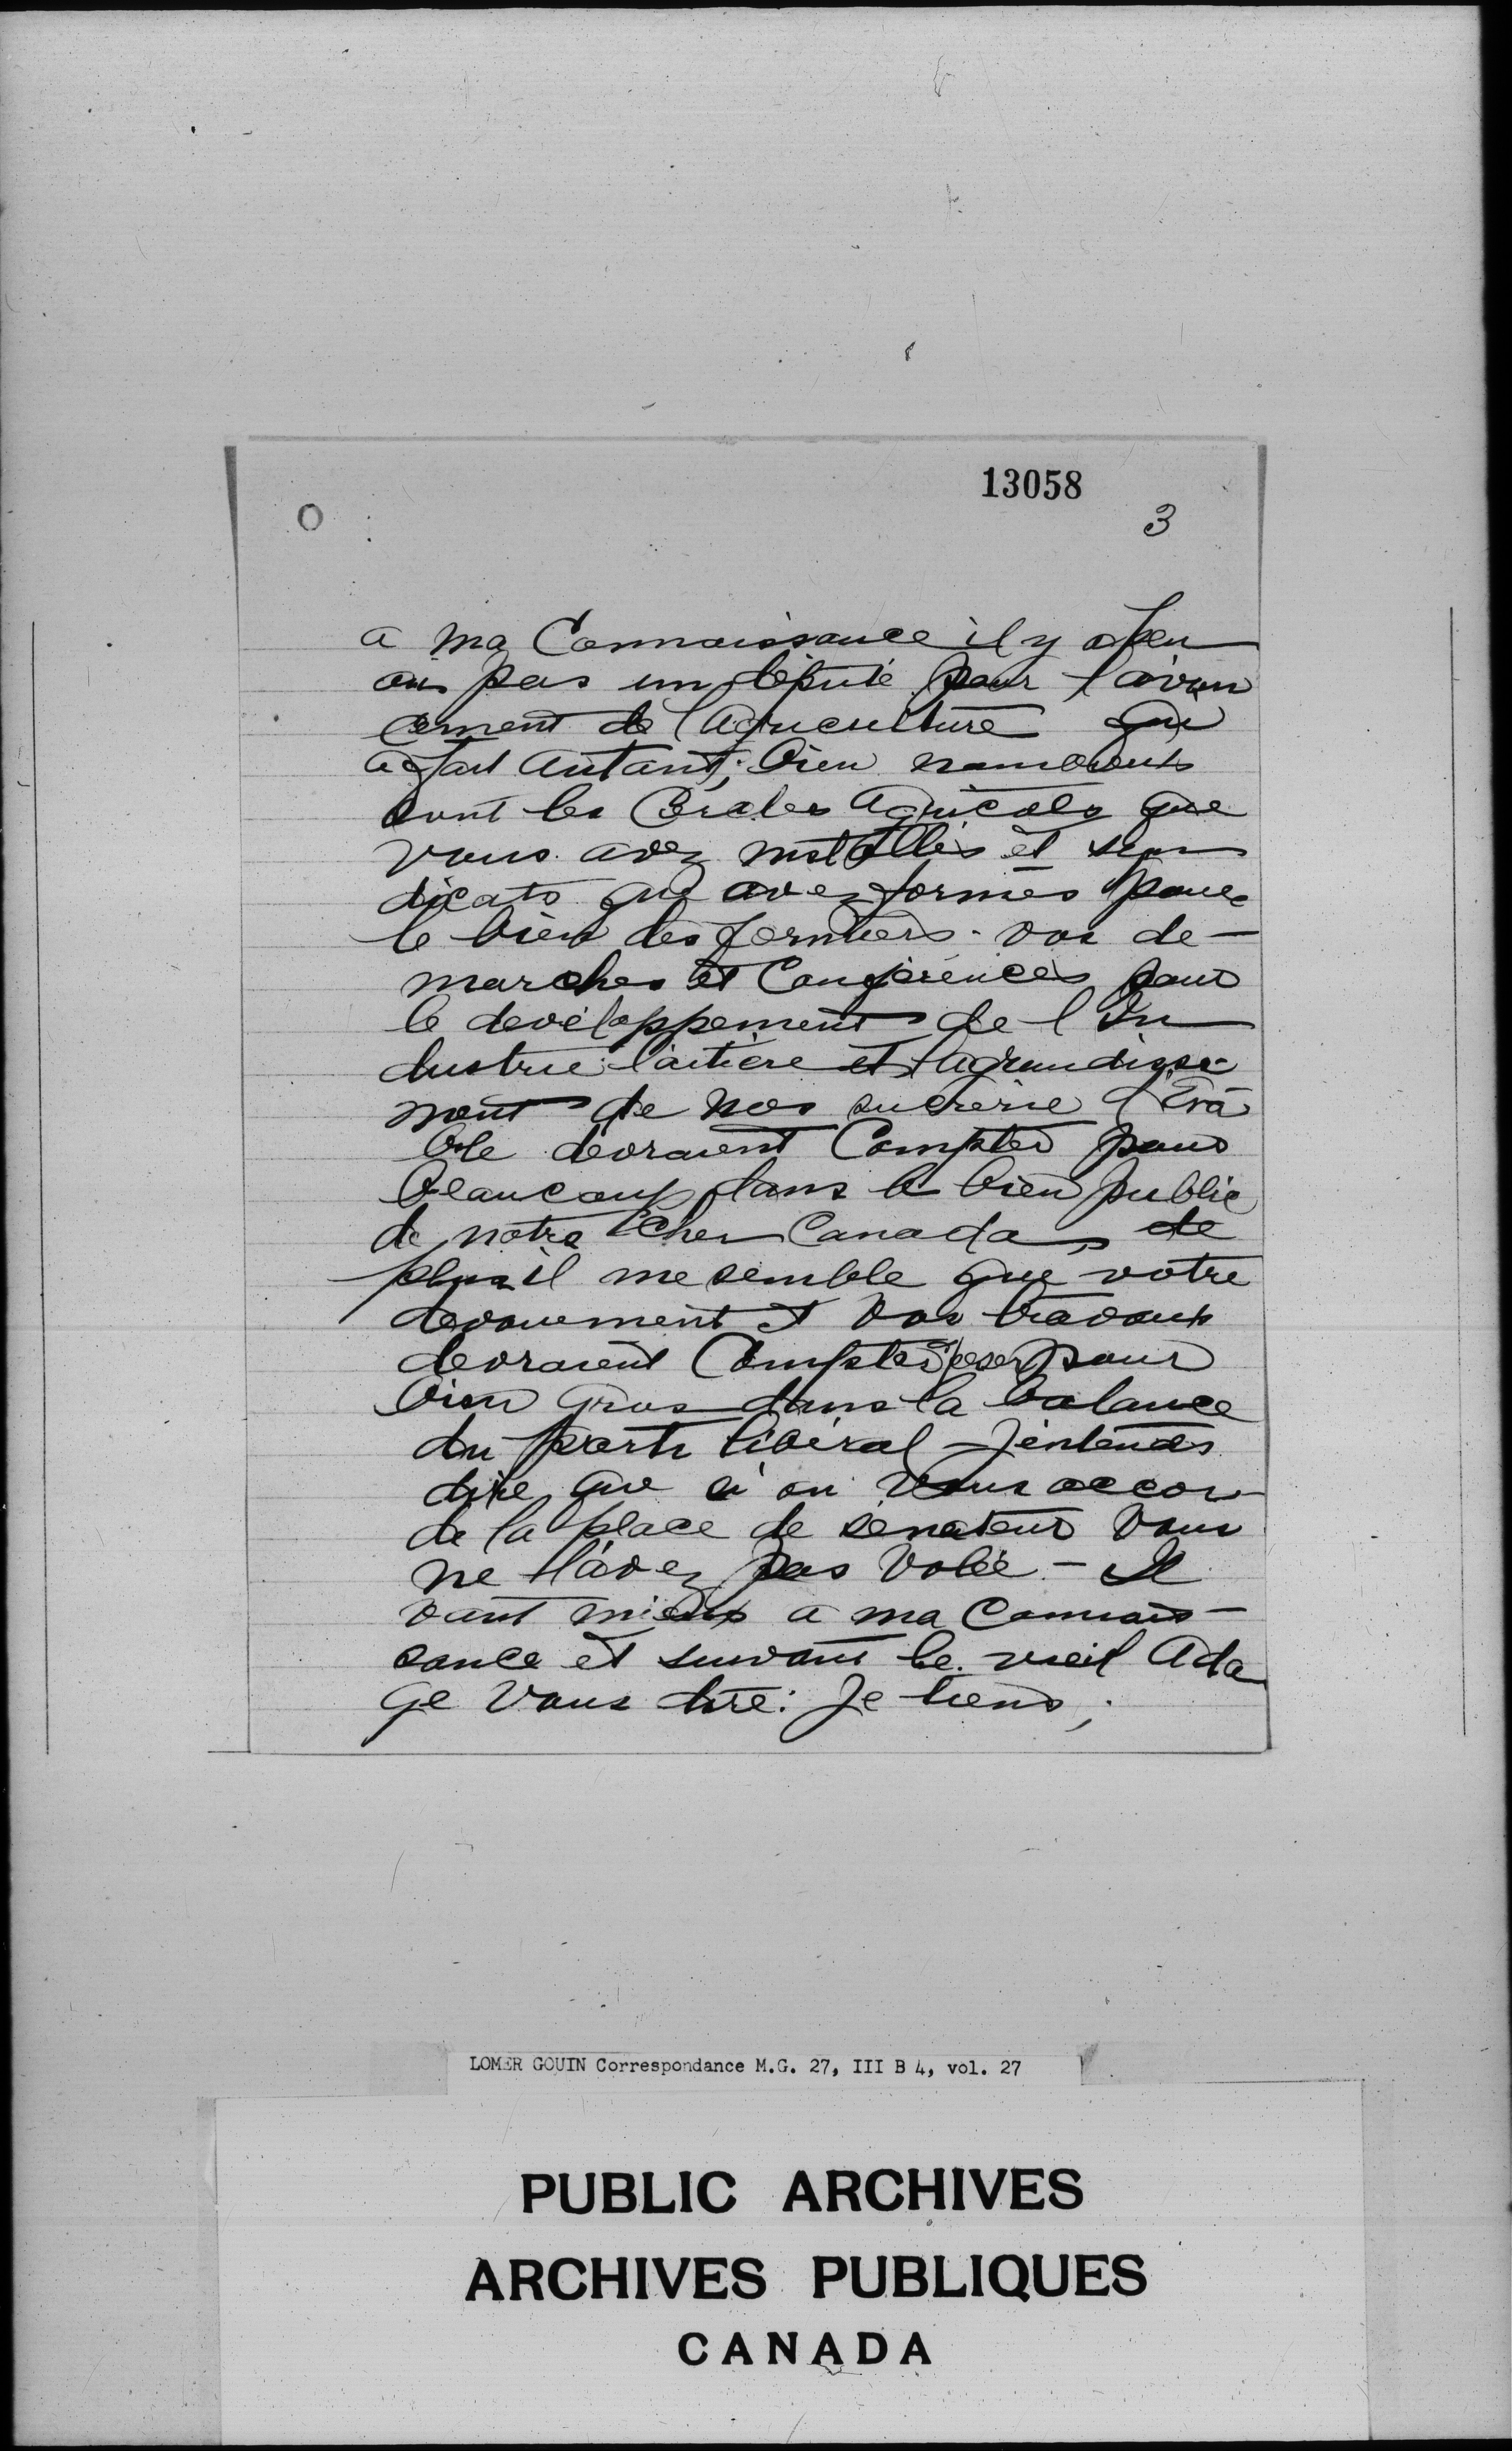 13058
3
a ma Connaissance il y a peu
ou pas un député pour l'avan
cement de l'agriculture qui
a fait autant; bien nombreux
sont les Cercles Agricoles que
vous avez installés et syn
dicats que avez formés pour
le bien des fermiers. vos de-
marches et Conférences pour
le developpement de l'In
dustrie laitière et l'agrandisse-
ment de nos sucrerie d'Erâ
ble devraient Compter pour
beaucoup dans le bien public
de notre Cher Canada, de
plus il me semble que votre
devouement et vos travaux
devraient Compter peser pour
bien gros dans la balance
du parti libéral - J'entends
dire que si on vous accor
de la place de sénateur vous
ne l'avez pas volée - Il
vaut mieux a ma Connais-
sance et suivant le vieil Ada
ge vous dire: Je tiens,
LOMER GOUIN Correspondance M.G. 27, III B 4, vol. 27
PUBLIC ARCHIVES
ARCHIVES PUBLIQUES
CANADA